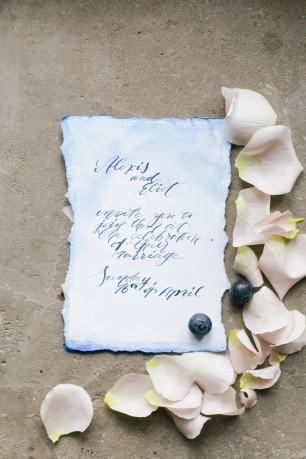 Alexis
and
Eliot
invite you to
join them at
the celebration
of their
marriage
Sunday
of April